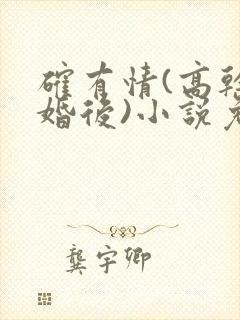 確有情(高幹
婚後)小說免
龔宇卿